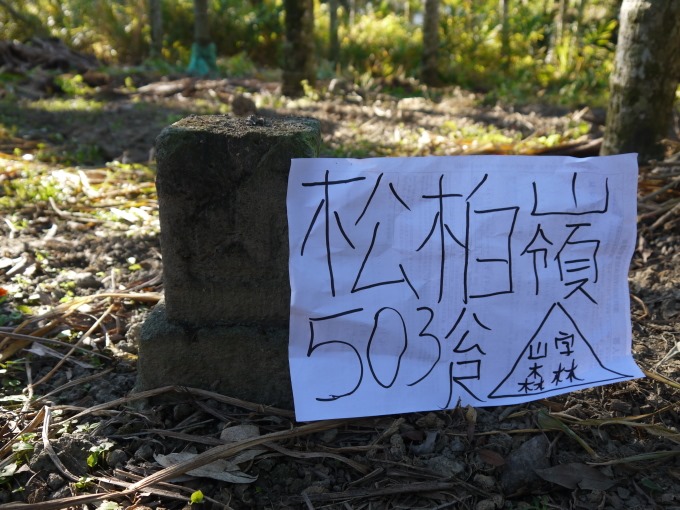 松柏嶺
503公尺
山字
森林